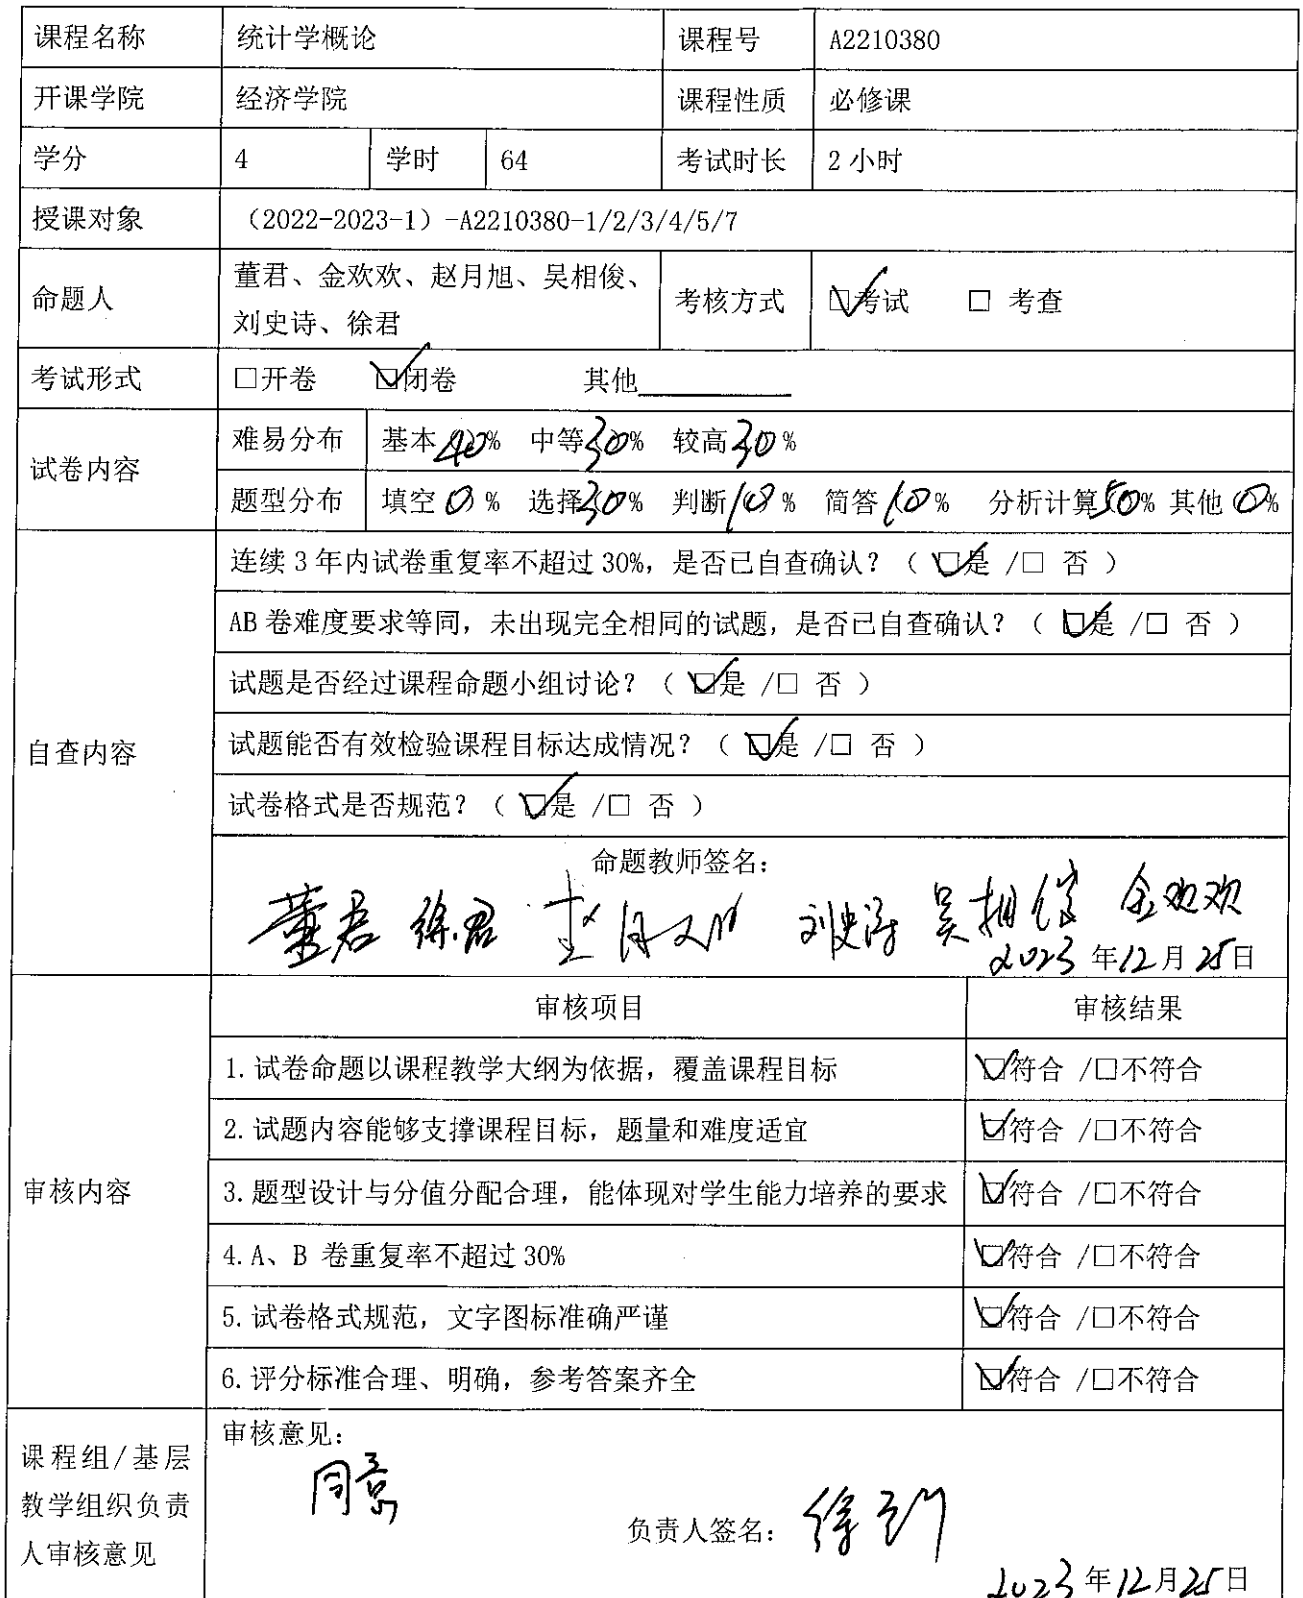 课程名称 统计学概论 课程号 A2210380
开课学院 经济学院 课程性质 必修课
学分 4 学时 64 考试时长 2小时
授课对象 （2022-2023-1）-A2210380-1/2/3/4/5/7
命题人 董君、金欢欢、赵月旭、吴相俊、
刘史诗、徐君 考核方式 □考试 □ 考查
考试形式 □开卷 □闭卷 其他
试卷内容 难易分布 基本40% 中等30% 较高30%
题型分布 填空0% 选择30% 判断10% 简答10% 分析计算50% 其他0%
自查内容 连续3年内试卷重复率不超过30%，是否已自查确认？（ □是 /□ 否 ）
AB卷难度要求等同，未出现完全相同的试题，是否已自查确认？（ □是 /□ 否 ）
试题是否经过课程命题小组讨论？（ □是 /□ 否 ）
试题能否有效检验课程目标达成情况？（ □是 /□ 否 ）
试卷格式是否规范？（ □是 /□ 否 ）
命题教师签名：
董君 徐君 赵月旭 刘史诗 吴相俊 金欢欢
2023年12月25日
审核内容 审核项目 审核结果
1.试卷命题以课程教学大纲为依据，覆盖课程目标 □符合 /□不符合
2.试题内容能够支撑课程目标，题量和难度适宜 □符合 /□不符合
3.题型设计与分值分配合理，能体现对学生能力培养的要求 □符合 /□不符合
4.A、B 卷重复率不超过30% □符合 /□不符合
5.试卷格式规范，文字图标准确严谨 □符合 /□不符合
6.评分标准合理、明确，参考答案齐全 □符合 /□不符合
课程组/基层
教学组织负责
人审核意见
审核意见：
同意
负责人签名：
2023年12月25日